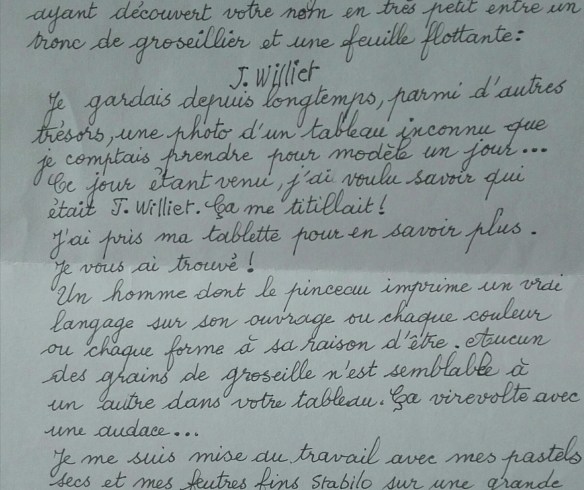 ayant découvert votre nom en très petit entre un
tronc de groseillier et une feuille flottante:
J. Williet
Je gardais depuis longtemps, parmi d'autres
trésors, une photo d'un tableau inconnu que
je comptais prendre pour modèle un jour...
Ce jour étant venu, j'ai voulu savoir qui
était J. Williet. Ça me titillait!
J'ai pris ma tablette pour en savoir plus.
Je vous ai trouvé!
Un homme dont le pinceau imprime un vrai
langage sur son ouvrage ou chaque couleur
ou chaque forme à sa raison d'être. Aucun
des grains de groseille n'est semblable à
un autre dans votre tableau. Ça virevolte avec
une audace...
Je me suis mise au travail avec mes pastels
secs et mes feutres fins Stabilo sur une grande